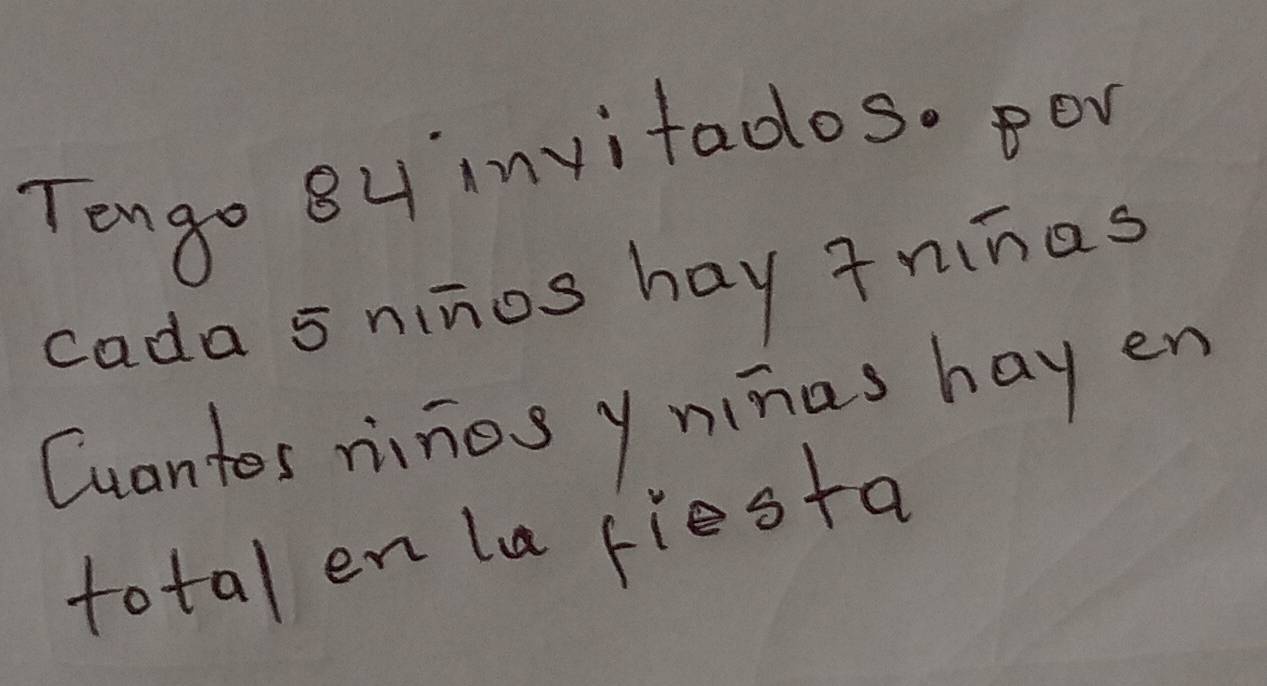 Tengo 84 invitados. por
cada 5 niños hay 7 niñas
Cuantos niños y niñas hay en
total en la fiesta